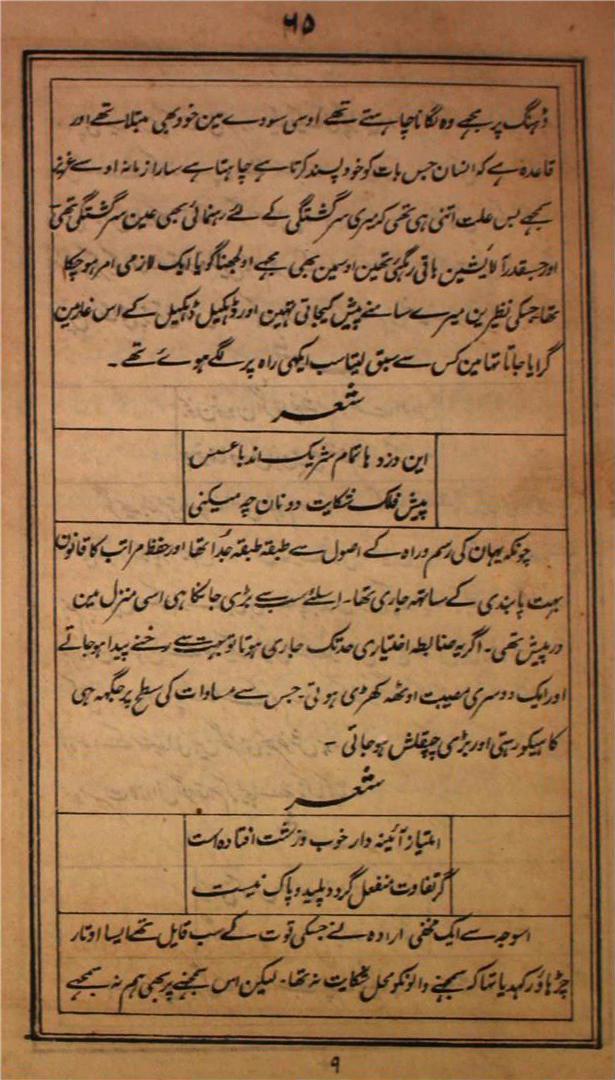 ۶۵
ڈہنگ پر مجہے وہ لگانا چاہتے تھے اوسی سودے مین خود بھی مبتلا تھے اور
قاعدہ ہے کہ انسان جس بات کو خود پسند کرتا ہے چاہتا ہے سارا زمانہ اوسے
مجہے بس علت اتنی ہی تھی کہ میری سرگشتگی کے لئے رہنمائی بھی عین سرگشتگی تھی
اور جسقدر آلایشین باقی رہگئی تھین اوسین بھی مجہے اولجھنا گویا ایک لازمی امر ہوچکا
تھا جسکی نظیرین میرے سامنے پیش کیجاتی تہین اور ڈہکیل ڈہکیل کے اس غار مین
گرایا جاتا تہا مین کس سے سبق لیتا سب ایکہی راہ پر لگے ہوئے تھے ۔
شعر
این دزد ہا تمام شریک اند با عسس
پیش فلک شکایت دونان چہ میکنی
چونکہ یہان کی رسم و راہ کے اصول سے طبقہ طبقہ جدُا تھا اور حفظ مراتب کا قانون
بہت پابندی کے ساتھہ جاری تھا۔ اسلئے سب سے بڑی جانکاہی اسی منزل مین
درپیش تھی۔ اگر یہ ضابطہ اختیاری حد تک جاری ہوتا تو بہت سے رخنے پیدا ہوجاتے
اور ایک دوسری مصیبت اوٹھہ کھڑی ہوتی۔ جس سے مساوات کی سطح پر جگہہ ہی
کاہیکو رہتی اور بڑی چپقلش ہوجاتی ۔
شعر
امتیاز آئینہ دار خوب و زشت افتادہ است
گر تفاوت منفعل گردد پلید و پاک نیست
اسوجہ سے ایک مخفی ارادہ نے جسکی قوت کے سب قایل تھے ایسا اوتار
چڑہاؤ رکہدیا تہا کہ سمجہنے والونکو محل شکایت نہ تھا۔ لیکن اس سمجہنے پر بھی ہم نہ سمجہے
۹